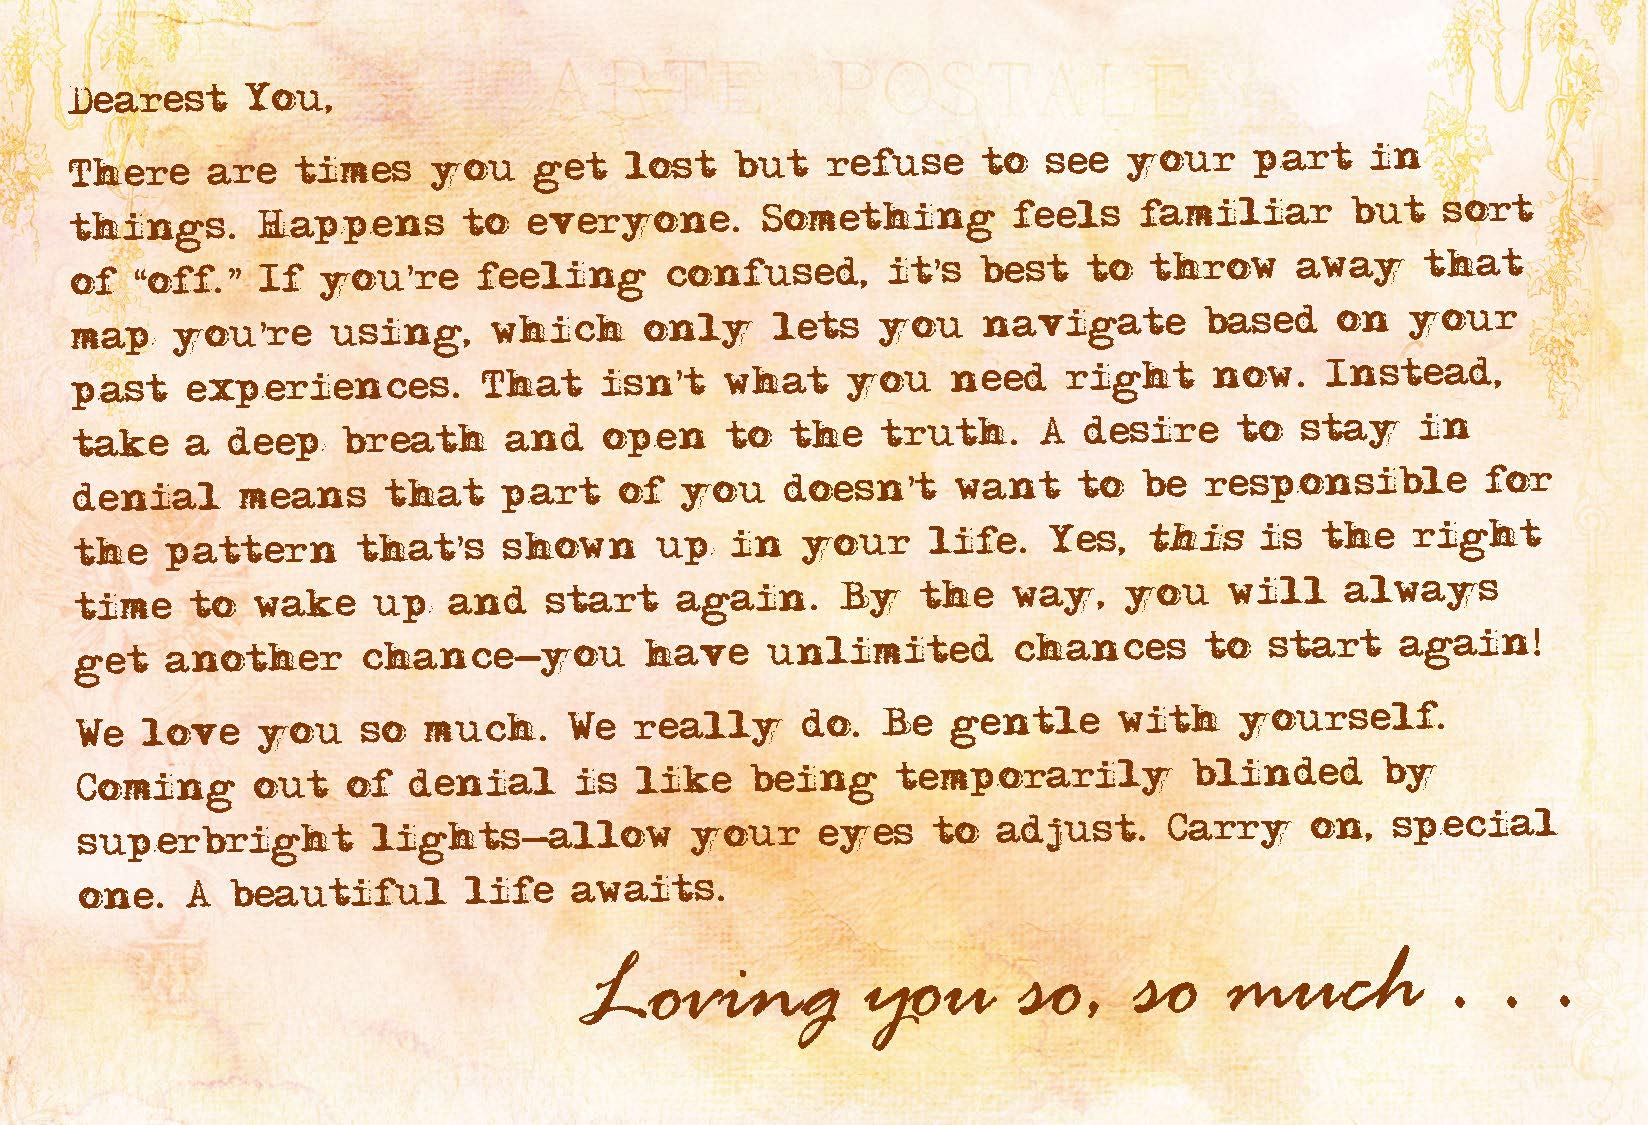 ARTE POSTALE
Dearest You,
There are times you get lost but refuse to see your part in
things. Happens to everyone. Something feels familiar but sort
of “off.” If you’re feeling confused, it’s best to throw away that
map you’re using, which only lets you navigate based on your
past experiences. That isn’t what you need right now. Instead,
take a deep breath and open to the truth. A desire to stay in
denial means that part of you doesn’t want to be responsible for
the pattern that’s shown up in your life. Yes, this is the right
time to wake up and start again. By the way, you will always
get another chance—you have unlimited chances to start again!
We love you so much. We really do. Be gentle with yourself.
Coming out of denial is like being temporarily blinded by
superbright lights—allow your eyes to adjust. Carry on, special
one. A beautiful life awaits.
Loving you so, so much . . .